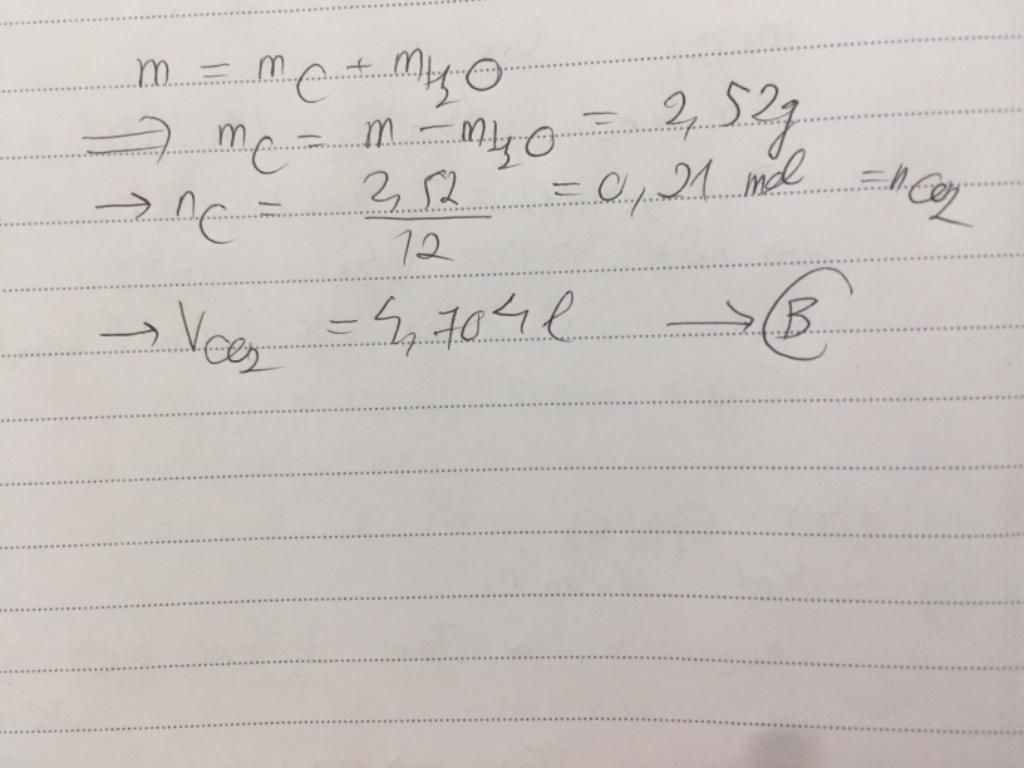 m = mC + mH2O
⟹ mC = m − mH2O = 2,52g
→ nC = 2,52/12 = 0,21 mol = nCO2
→ VCO2 = 4,704 l → B